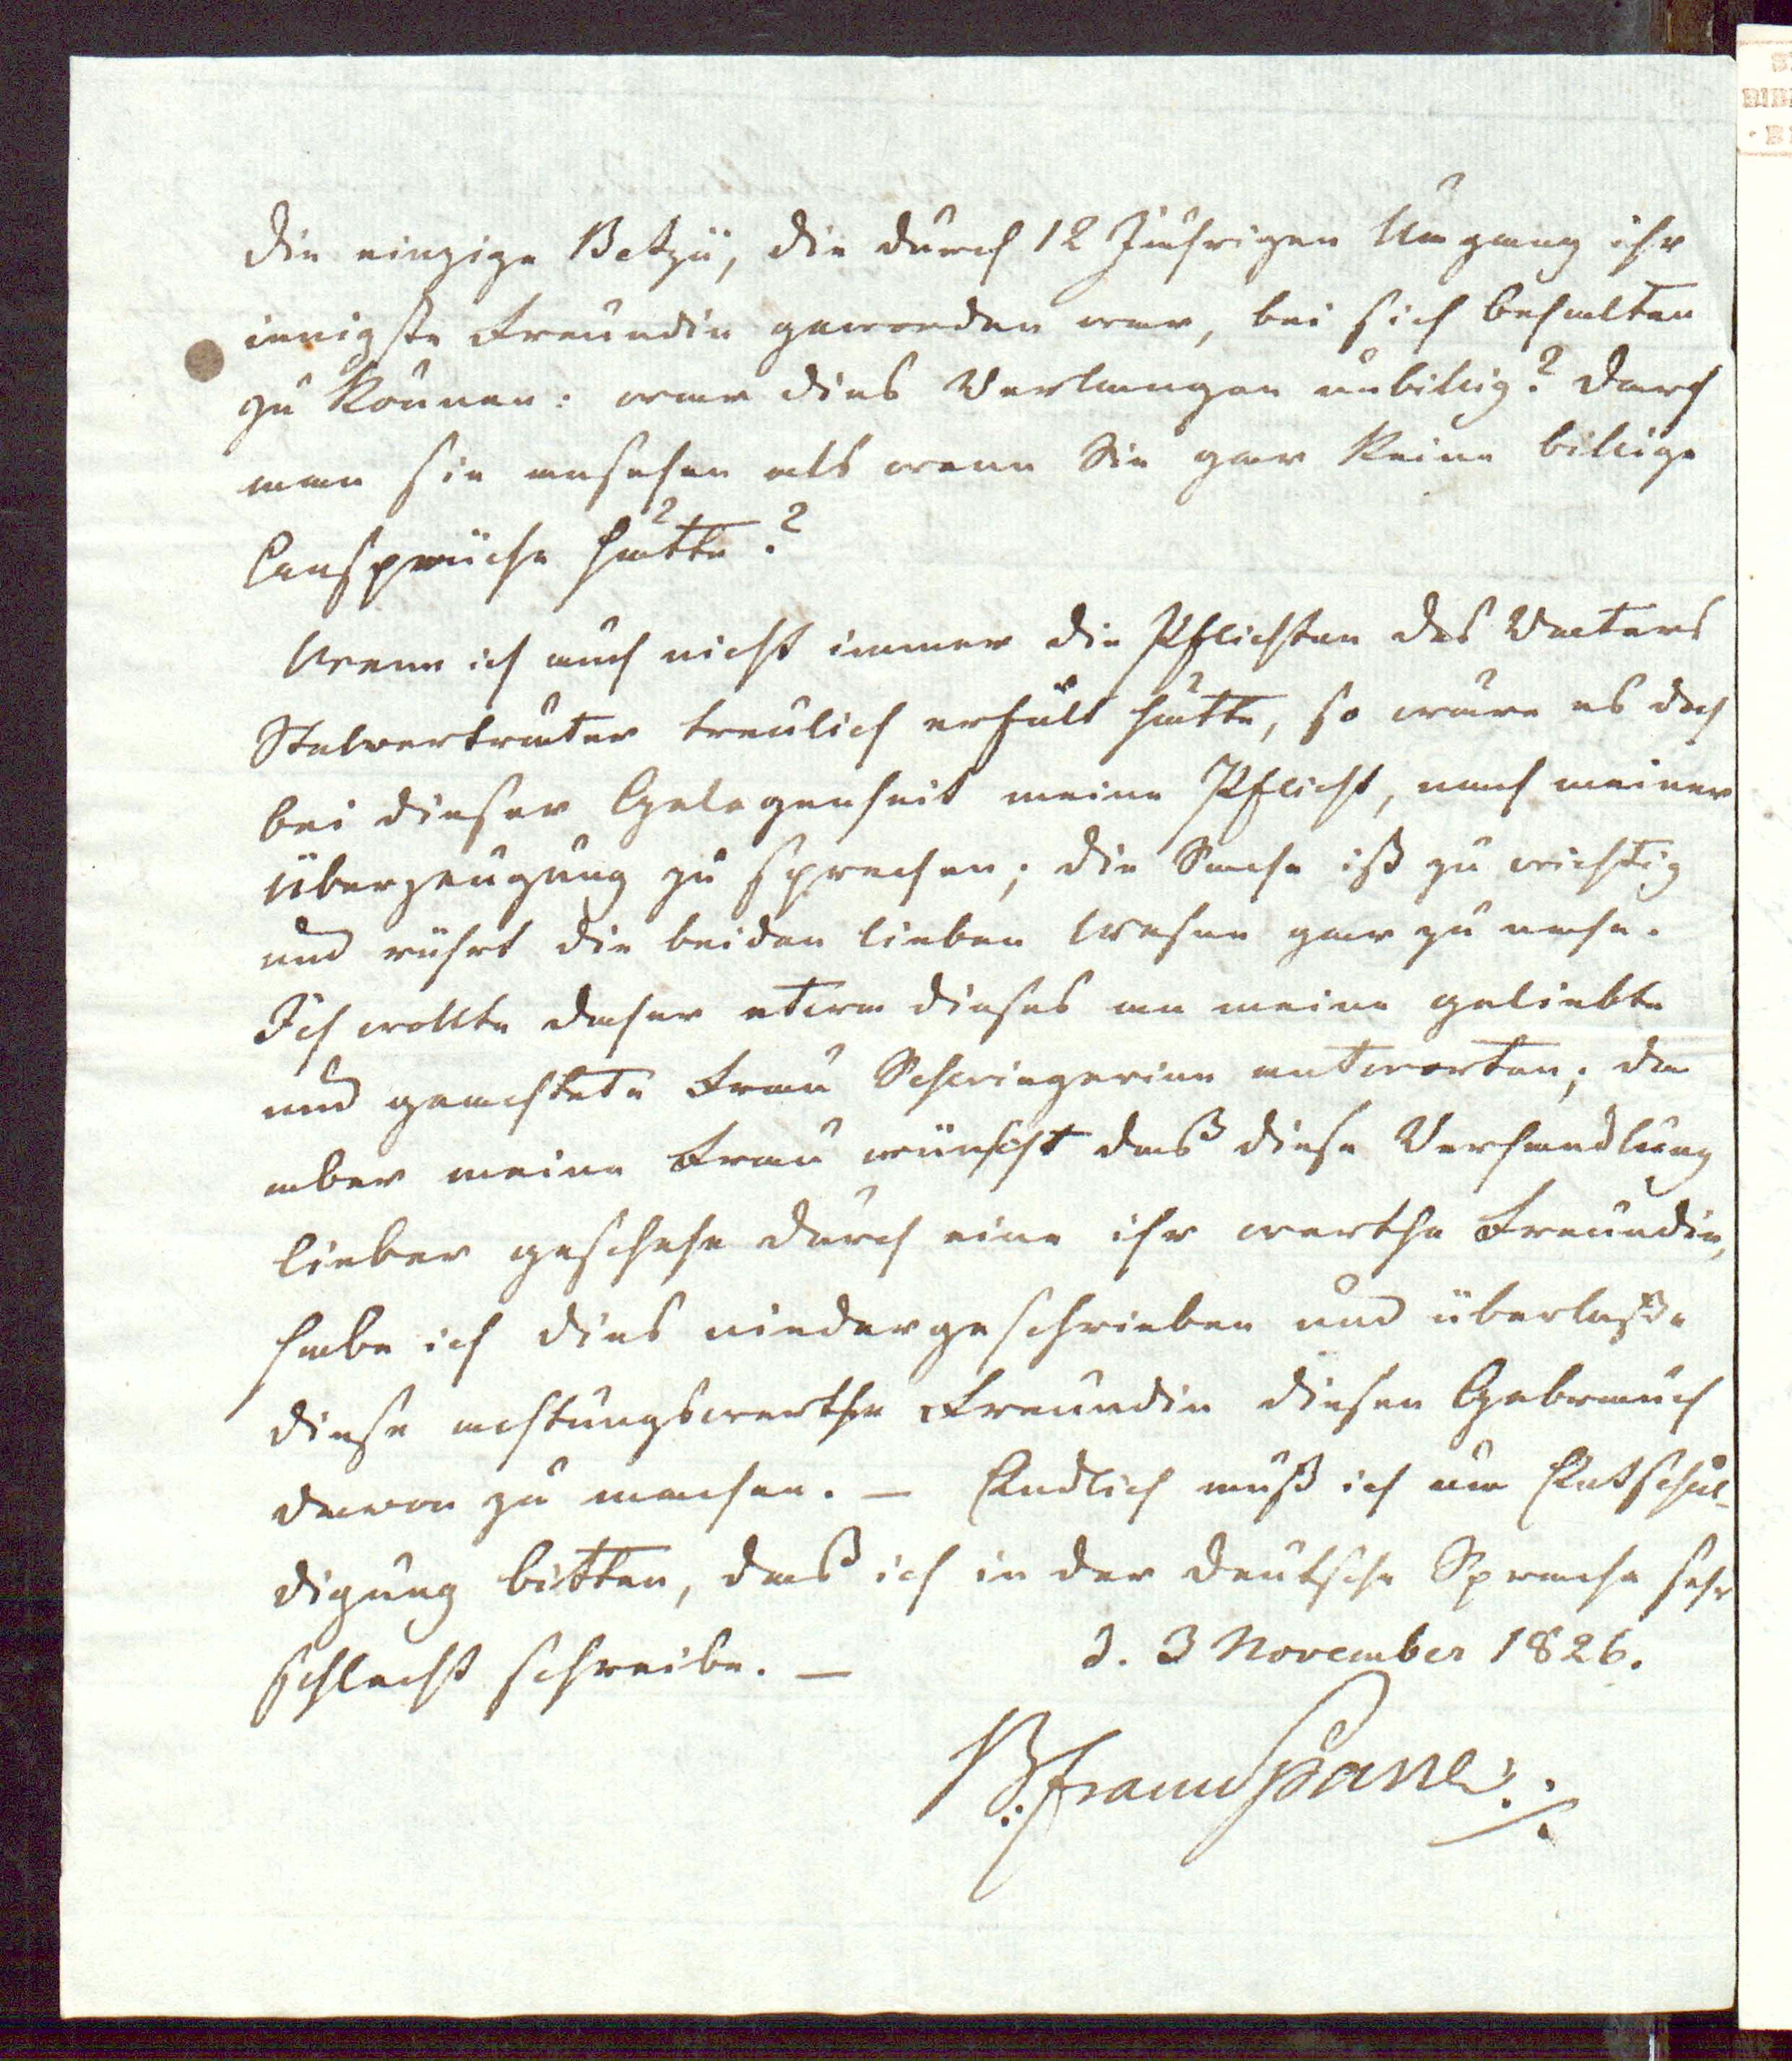 die einzige Betzü, die durch 12 Jährigen Umgang ihr
innigste Freundin geworden war, bei sich behalten
zu können: war dies Verlangen unbillig? Darf
man sie ansehen als wenn Sie gar keine billige
Ansprüche hätte?
Wenn ich auch nicht immer die Pflichten des Vaters
Stelverträter treulich erfült hätte, so wäre es doch
bei dieser Gelegenheit meine Pflicht, nach meiner
Überzeugung zu sprechen; die Sache ist zu wichtig
und rührt die beiden lieben Wesen gar zu nahe.
Ich wollte daher etwa dieses an meine geliebte
und geachtete Frau Schwiegerinn antworten; da
aber meine Frau wünscht daß diese Verhandlung
lieber geschehe durch eine ihr werthe Freundin,
habe ich dies niedergeschrieben und überlaße
diese achtungswerthe Freundin diesen Gebrauch
davon zu machen. — Endlich muß ich um Entschul-
digung bitten, daß ich in der deutsche Sprache sehr
schlecht schreibe. — d. 3 November 1826.